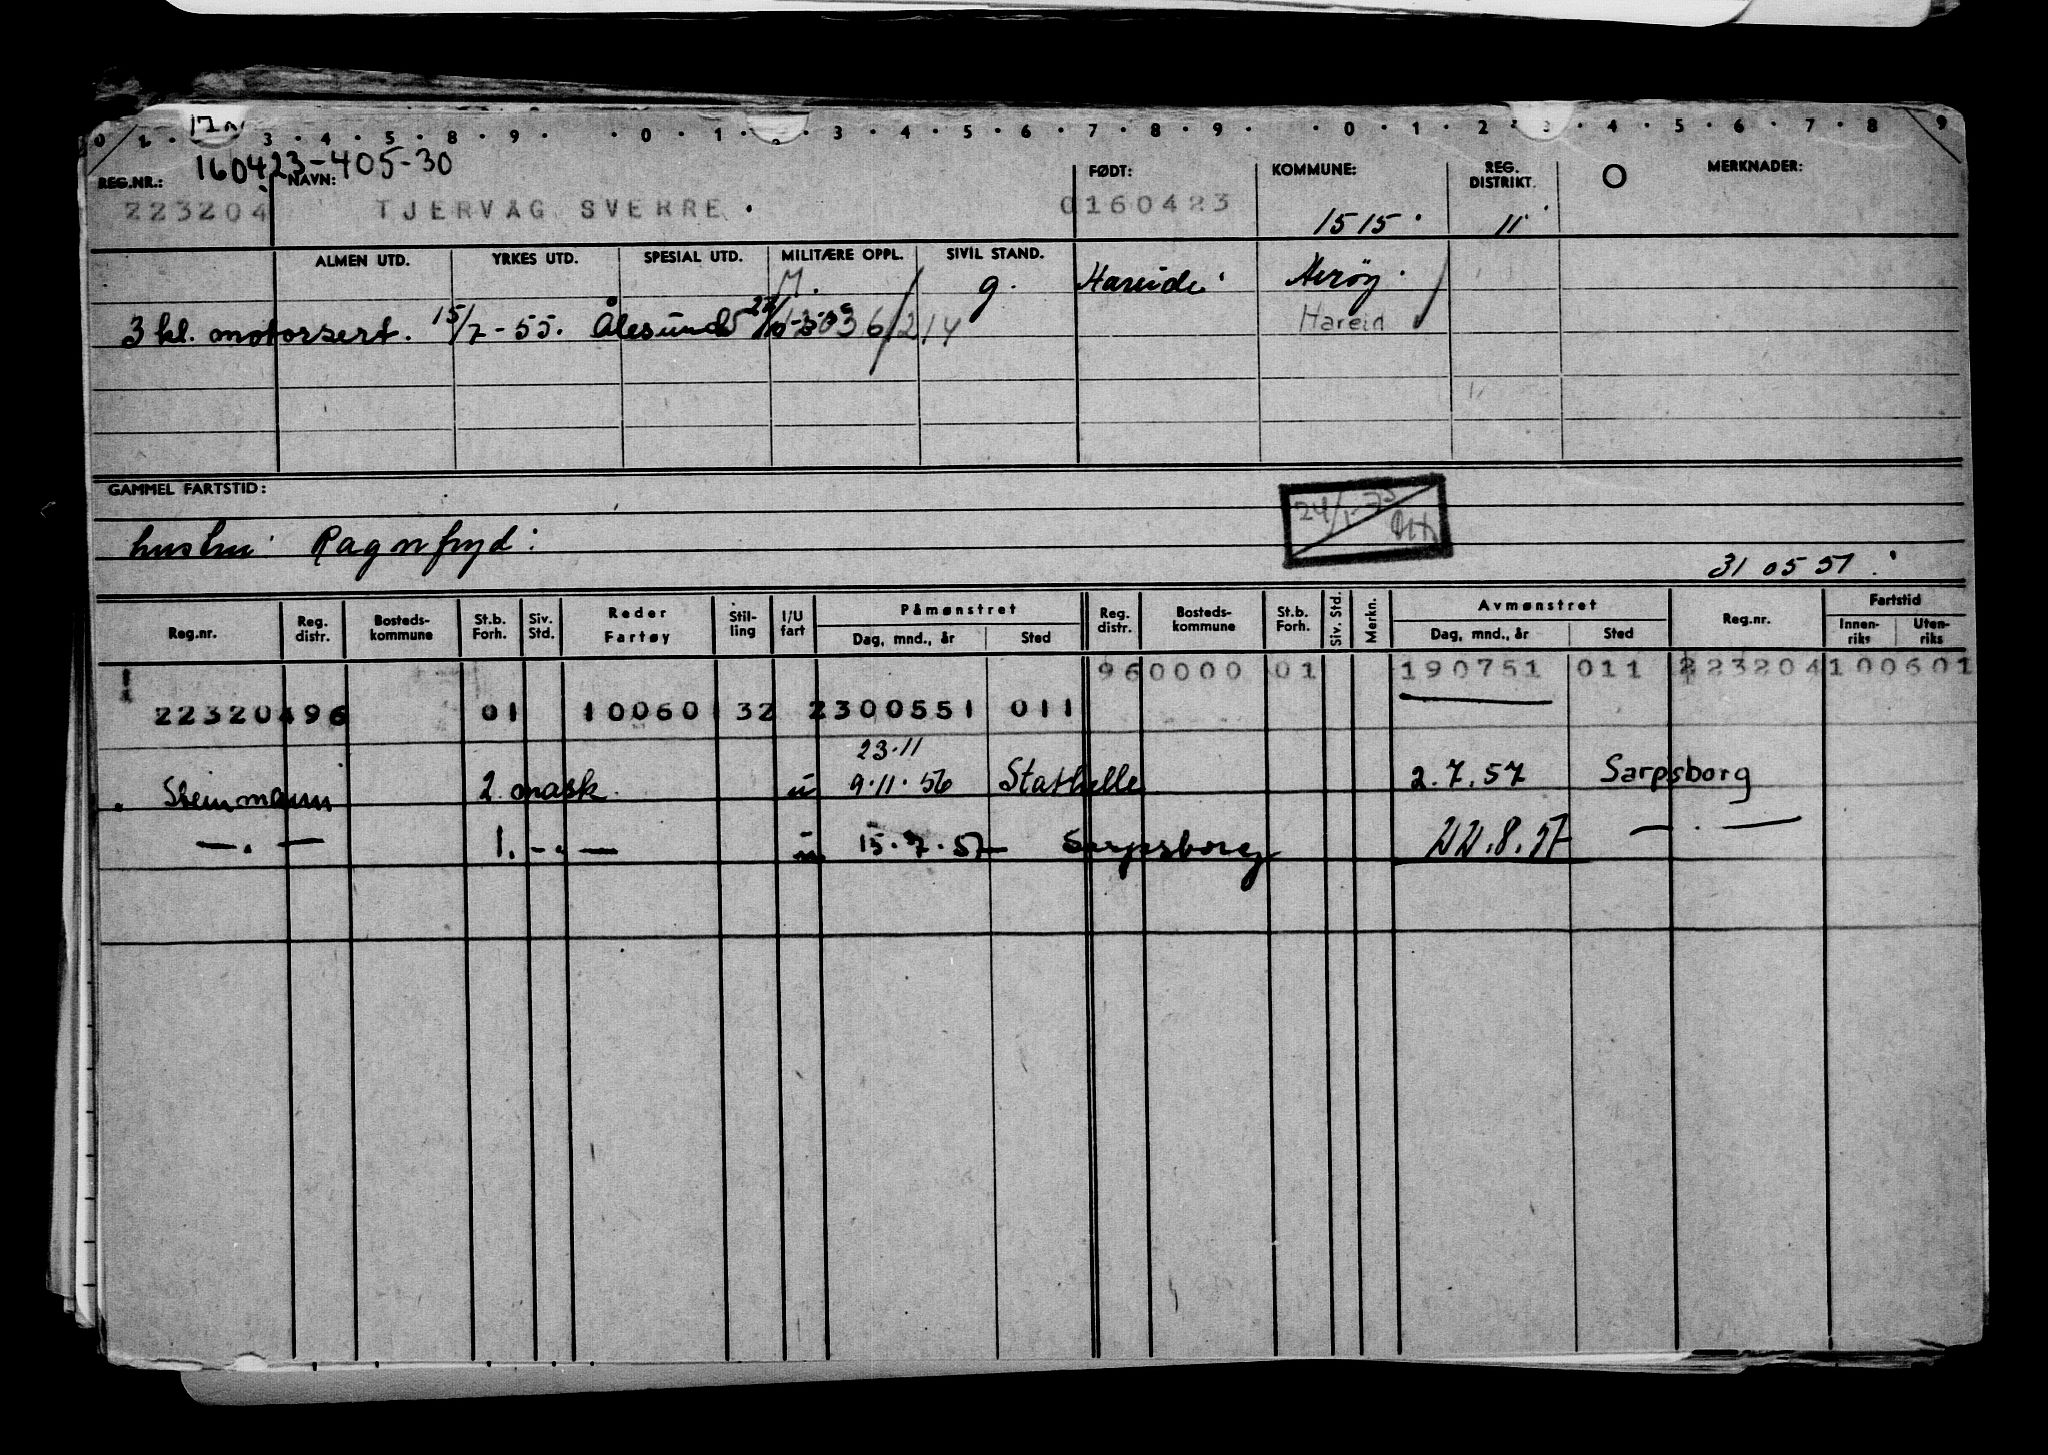 0 1 . 3 . 4 . 5 . 8 . 9 . . 0 . 1 . 3 . 4 . 5 . 6 . 7 . 8 . 9 . . 0 . 1 . 2 . 3 . 4 . 5 . 6 . 7 . 8 9
160423-405-30
REG.NR.: NAVN: FØDT: KOMMUNE: REG. DISTRIKT. O MERKNADER:
223204 TJERVÅG SVERRE . 0160423 1515 . 11
ALMEN UTD. YRKES UTD. SPESIAL UTD. MILITÆRE OPPL. SIVIL STAND.
M. g. Hareide Herøy .
3 kl. motorsert. 15/7-55. Ålesund 214 Hareid
GAMMEL FARTSTID:
24/1-73
hustru: Ragnfryd:
31 05 51 .
Reg.nr. Reg. distr. Bosteds- kommune St.b. Forh. Siv. Std. Reder Fartøy Stil- ling I/U fart Påmønstret Dag, mnd., år Sted Reg. distr. Bosteds- kommune St.b. Forh. Siv. Std. Merkn. Avmønstret Dag, mnd., år Sted Reg.nr. Fartstid Innen- riks Uten- riks
960000 01 190751 011 223204 100601
223204 96 01 100601 32 2300551 011
23.11
Steinmann 2. mask. u 9.11.56 Stathelle 2.7.57 Sarpsborg
— . — 1. - . — u 15.7.57 Sarpsborg 22.8.57 — . —